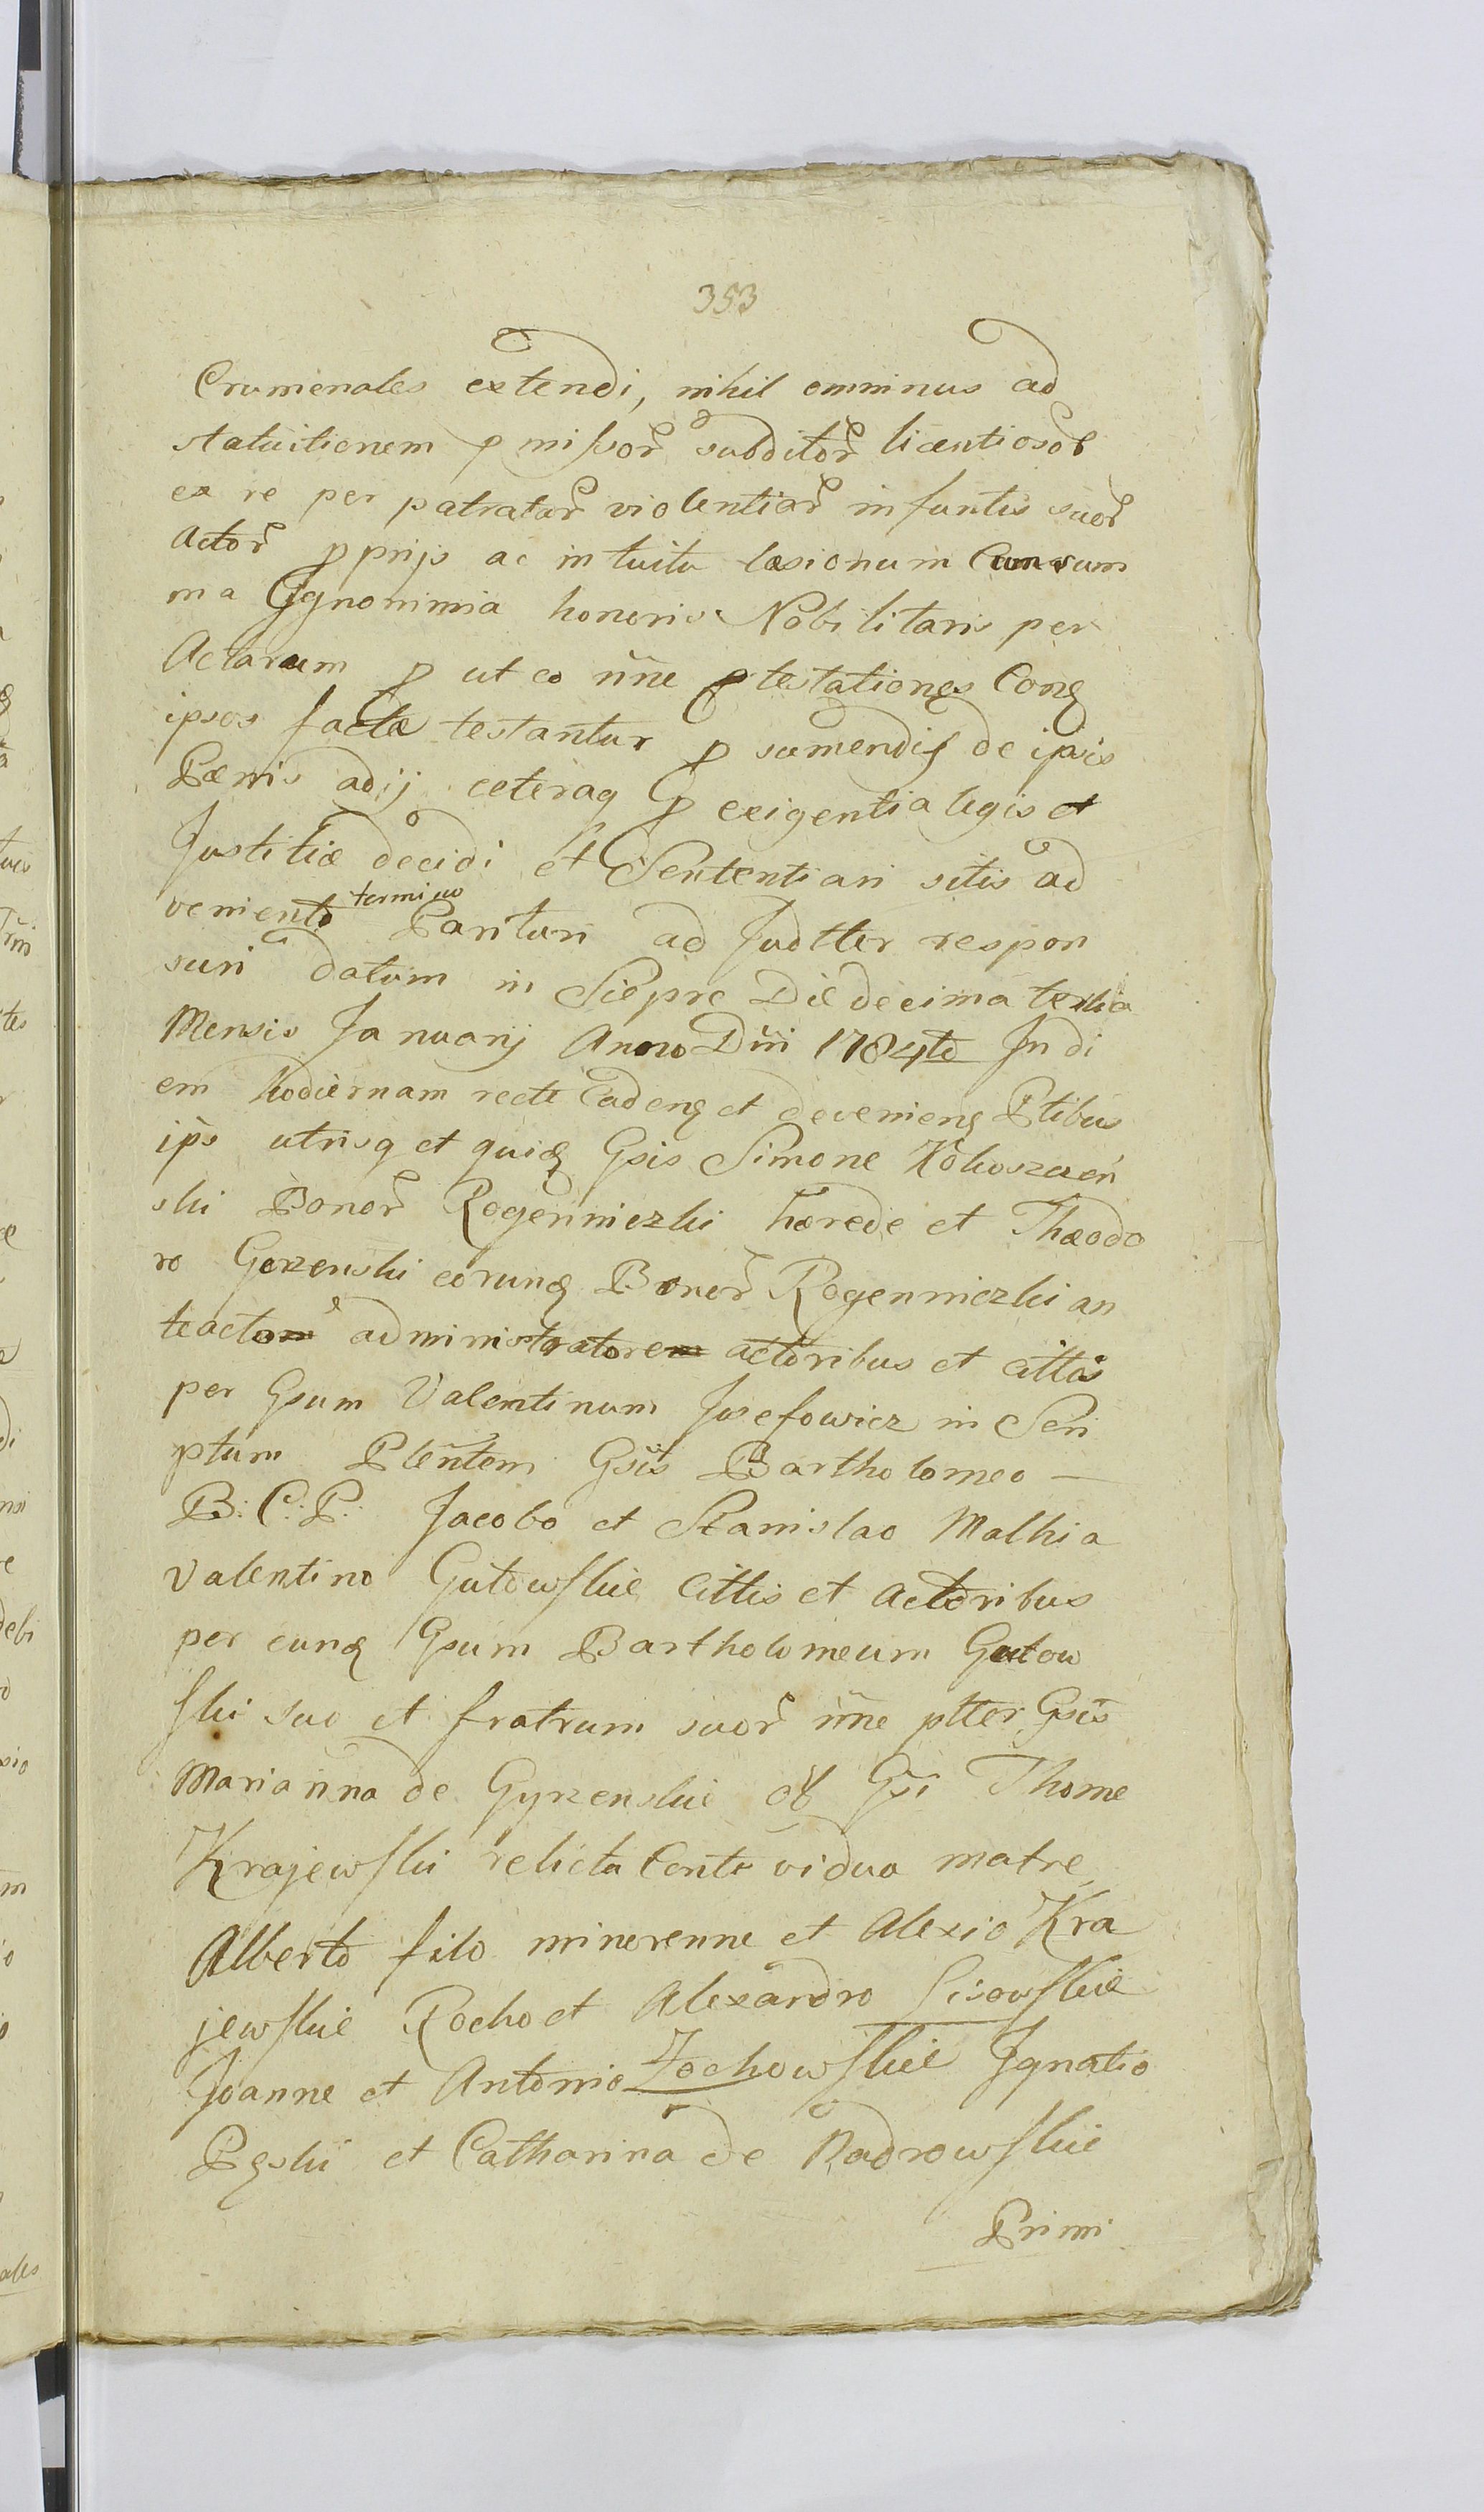 353
Crumenales extendi, nihil ominus ad
statuitionem p missor subditor licentiosor
ex re per patratar violentiar in funtis suor
Actor pprijs ac intuitu læsionum Cum sum
ma Ignonimia honoris Nobilitaris per
Actarum p ut eo nne ptestationes Conq
ipsos factæ testantur p sumendis de ipsis
Pænis adij ceteraq p exigentia legis et
Justitiæ decidi et Sententiari sitis ad
veniento termino Parituri ad Judtter respon
suri Datum in Sieprc Die decima tertia
Mensis Januarij Anno Dni 1784to In di
em hodiernam recte Cadenq et devenienq Ptibus
ips utrisq et quiq Gsis Simone Kokoszczeń
ski Bonor Rogenniczki hærede et Theodo
ro Gorzenski eorunq Bonor Rogenniczki an
teacto administratore actoribus et cittis
per Gsum Valentinum Josefowicz in Scri
ptum Plentem Gsis Bartholomeo —
B: C: P: Jacobo et Stanislao Mathia
Valentino Gutowskie Cittis et Actoribus
per eunq Gsum Bartholomeum Gutow
ski suo et fratrum suor nne ptter Gsis
Marianna de Gyrzenskie olf Gsi Thome
Krajewski relicta Conte vidua matre
Alberto filo minorenne et Alexio Kra
jewskie Rocho et Alexandro Lisowskie
Joanne et Antonio Zochowskie Ignatio
Pęski et Catharina de Nadrowskie
Primi